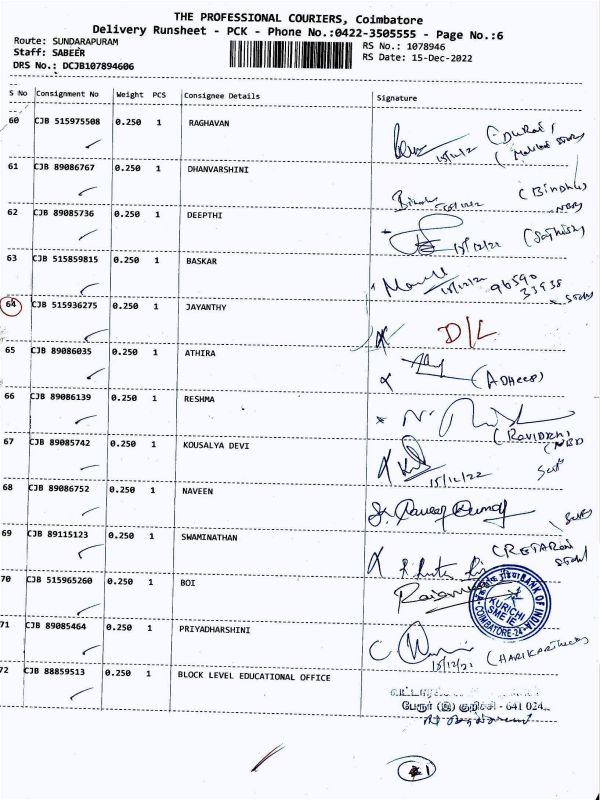 THE PROFESSIONAL COURIERS, Coimbatore
Delivery Runsheet - PCK - Phone No.:0422-3505555 - Page No.:6
Route: SUNDARAPURAM
RS No.: 1078946
Staff: SABEER
RS Date: 15-Dec-2022
DRS No.: DCJB107894606
S No Consignment No Weight PCS Consignee Details Signature
60 CJB 515975508 0.250 1 RAGHAVAN
15/12/22
61 CJB 89086767 0.250 1 DHANVARSHINI
(Bindhu)
62 CJB 89085736 0.250 1 DEEPTHI
15/12/22 (Sathish)
63 CJB 515859815 0.250 1 BASKAR
15/12/22 96590
33938
64 CJB 515936275 0.250 1 JAYANTHY
D/L
65 CJB 89086035 0.250 1 ATHIRA
66 CJB 89086139 0.250 1 RESHMA
67 CJB 89085742 0.250 1 KOUSALYA DEVI
15/12/22
68 CJB 89086752 0.250 1 NAVEEN
69 CJB 89115123 0.250 1 SWAMINATHAN
70 CJB 515965260 0.250 1 BOI
BANK OF INDIA
KURICHI
COIMBATORE-24
71 CJB 89085464 0.250 1 PRIYADHARSHINI
72 CJB 88859513 0.250 1 BLOCK LEVEL EDUCATIONAL OFFICE
பேரூர் (இ) குறிச்சி - 641 024